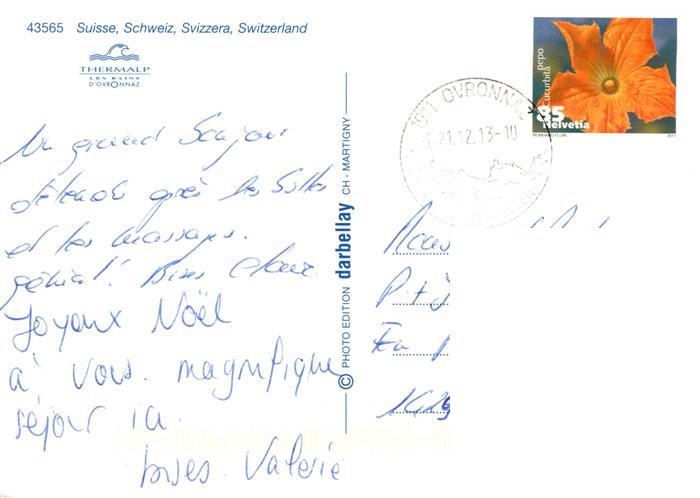 43565 Suisse, Schweiz, Svizzera, Switzerland
THERMALP
LES BAINS
D'OVRONNAZ
Un grand Bonjour
détendu après les bulles
et les massages.
génial! Bises
Joyeux Noël
à vous. magnifique
séjour ici.
bises Valérie
© PHOTO EDITION darbellay CH - MARTIGNY
1911 OVRONNAZ
21.12.13-10
Cucurbita pepo
85
Helvetia
P + J
En